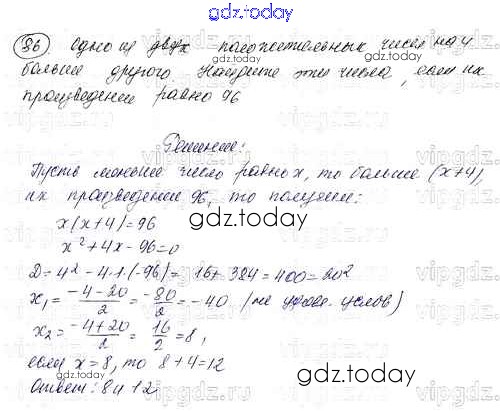 gdz.today
86 Одно из двух положительных чисел на 4
больше другого. Найдите эти числа, если их
произведение равно 96
gdz.today
Решение:
Пусть меньшее число равно x, то больше (x+4),
их произведение 96, то получаем:
x(x+4)=96
gdz.today
x²+4x-96=0
D=4²-4·1·(-96)=16+384=400=20²
x₁=(-4-20)/2=-80/2=-40 (не удовл. услов)
x₂=(-4+20)/2=16/2=8,
если x=8, то 8+4=12
gdz.today
Ответ: 8 и 12
gdz.today